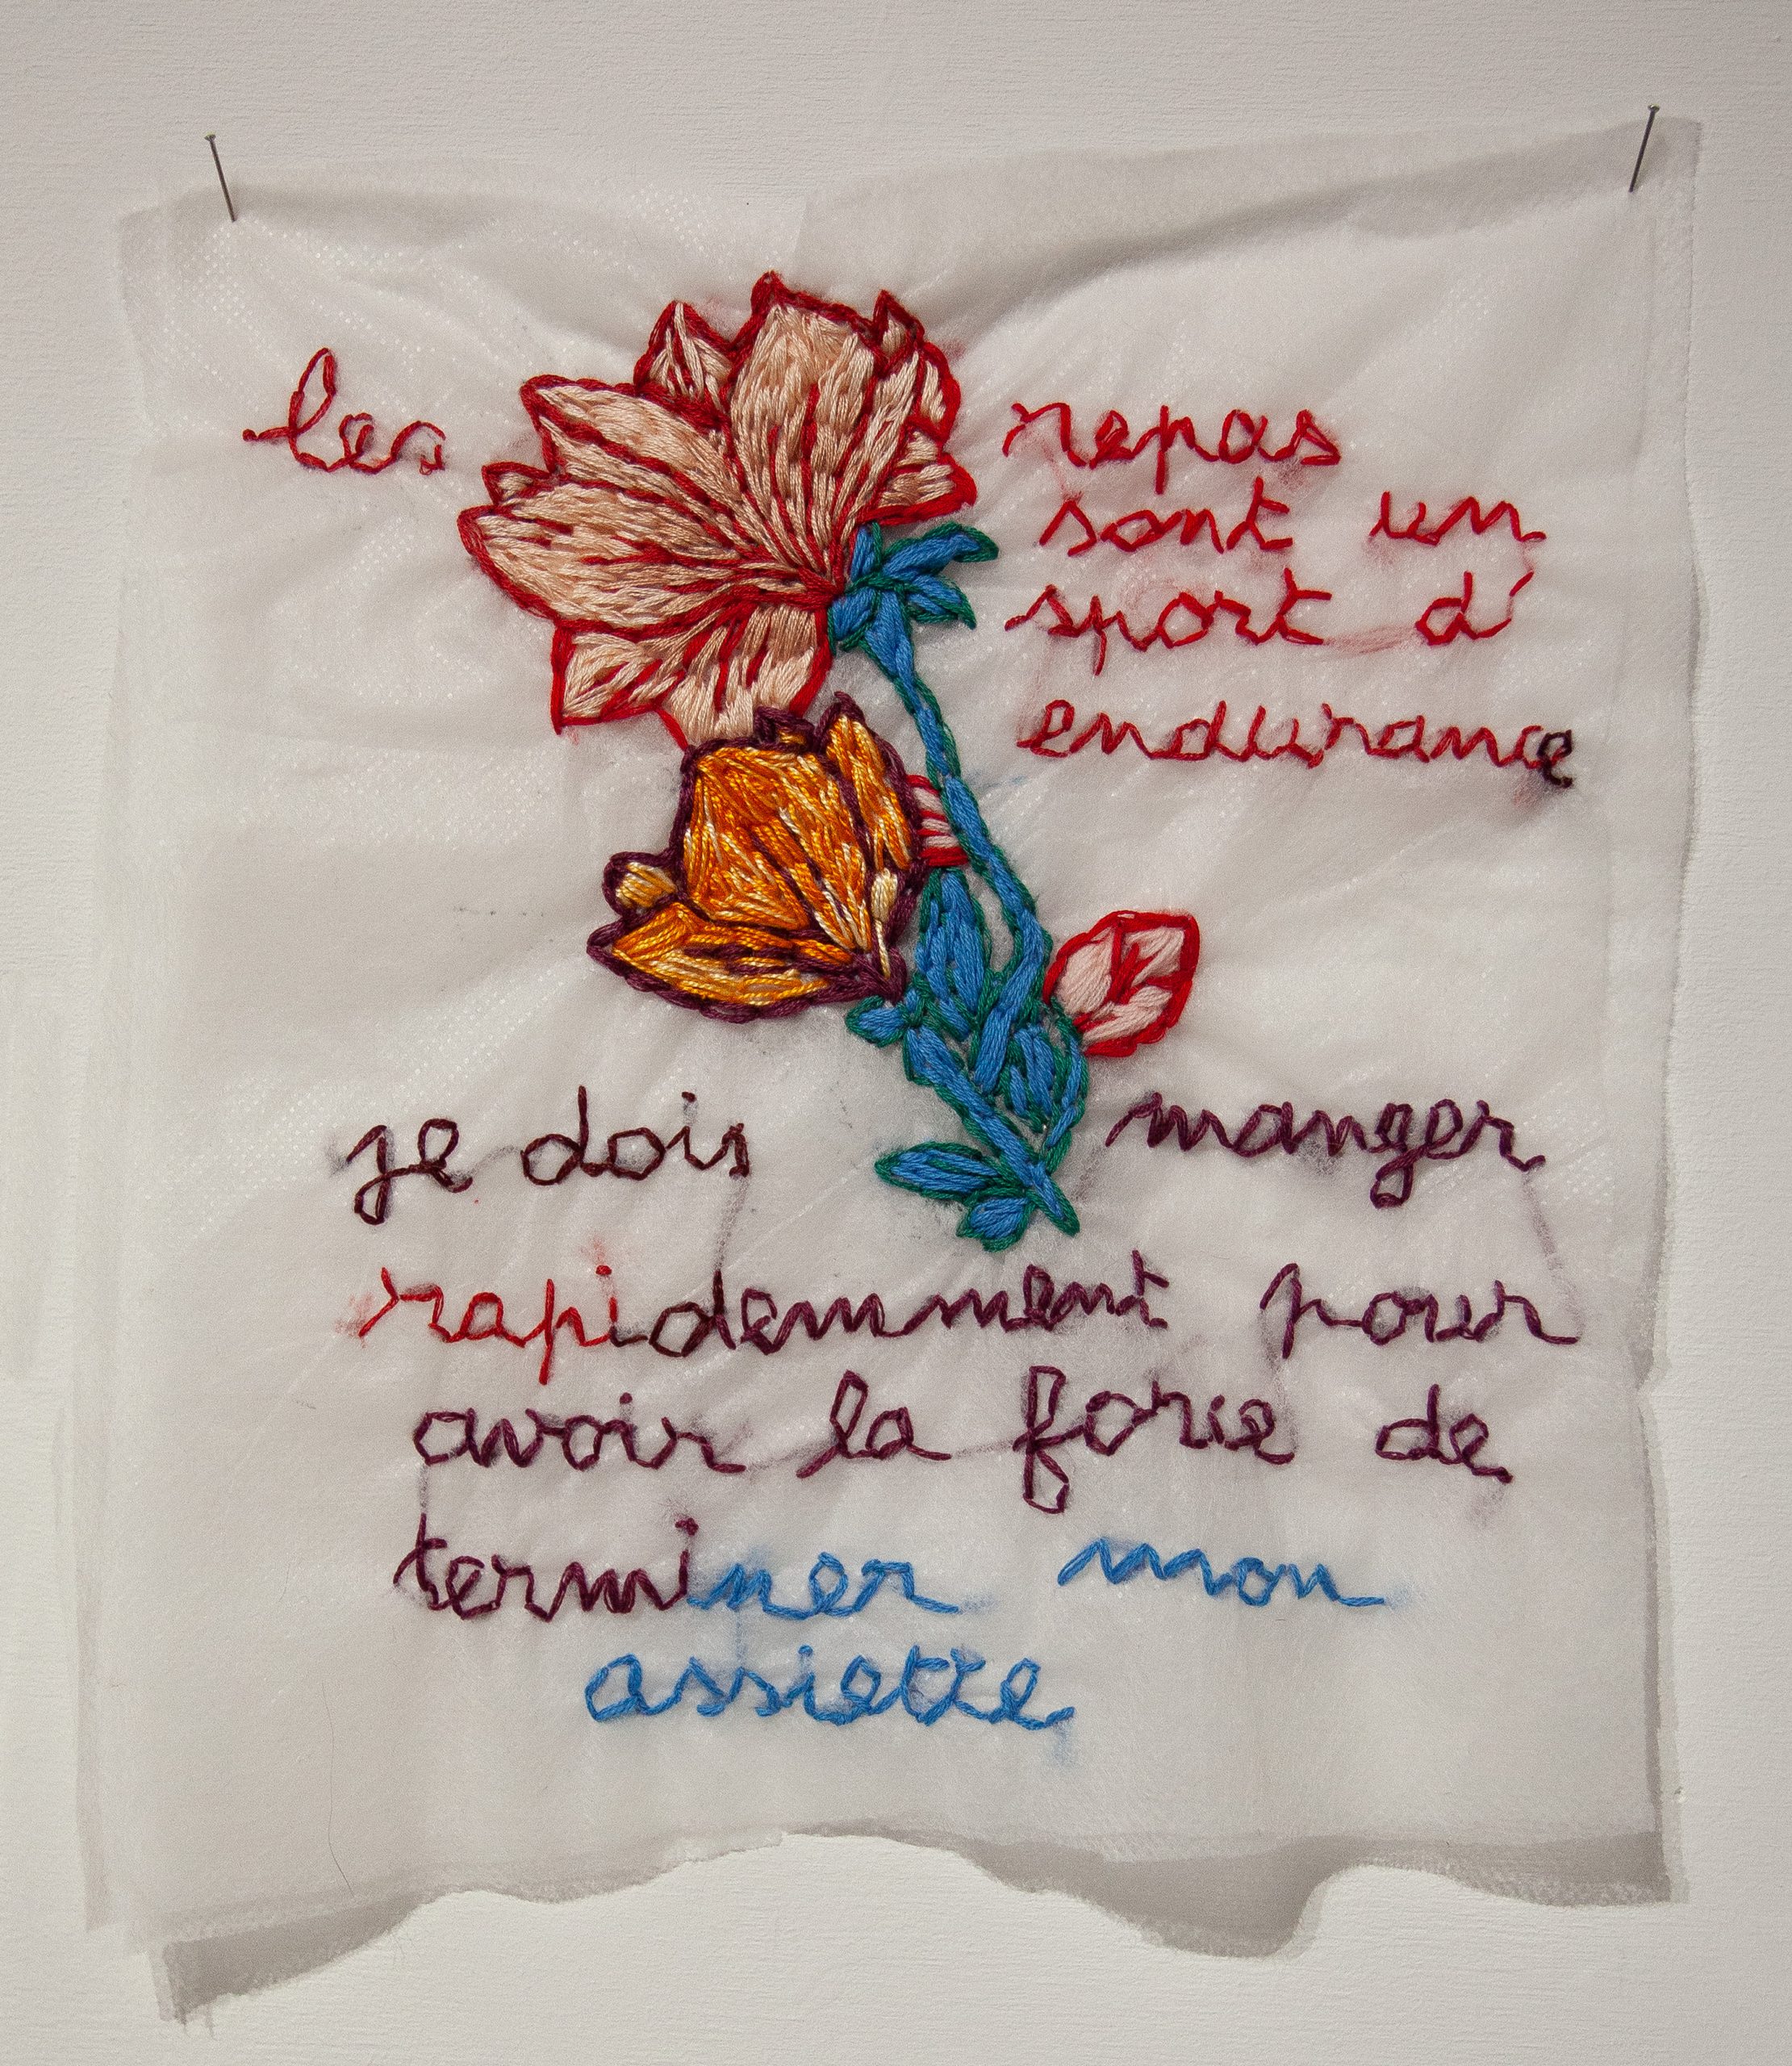 les repas
sont un
sport d'
endurance
je dois manger
rapidemment pour
avoir la force de
terminer mon
assiette